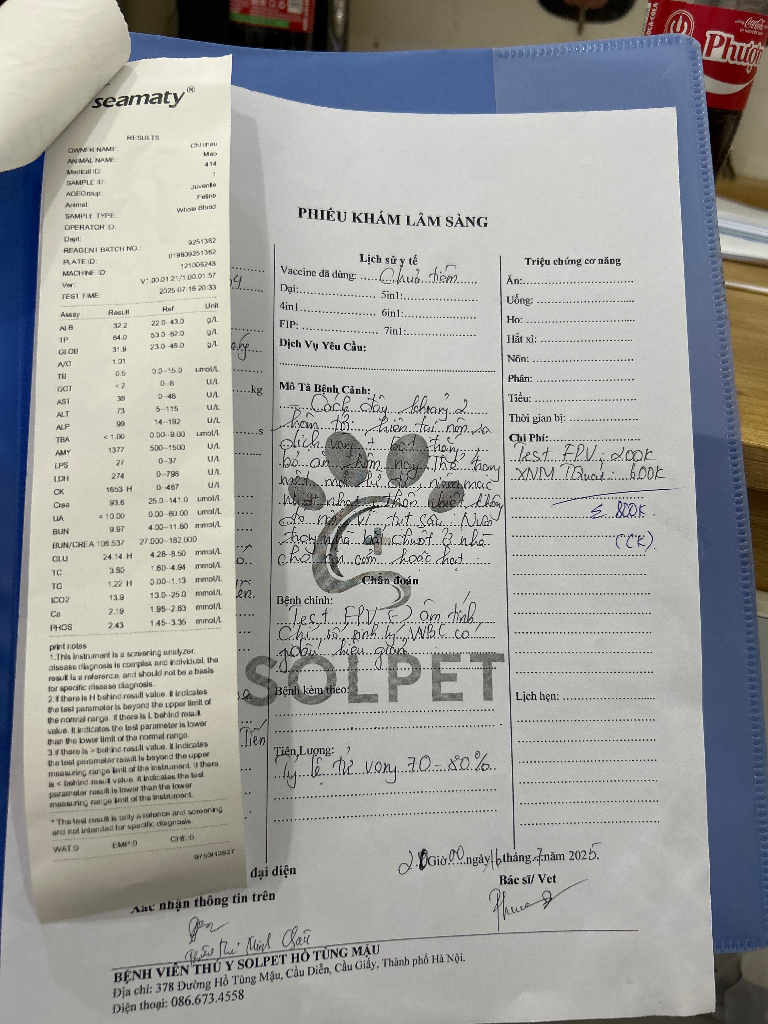 seamaty®
RESULTS
OWNER NAME: Chi chau
ANIMAL NAME: Mao
Medical ID: 414
SAMPLE ID: 1
AGEGroup: Juvenile
Animal: Feline
SAMPLE TYPE: Whole Blood
OPERATOR ID:
Dept:
REAGENT BATCH NO.: 9251382
PLATE ID: 019809251382
MACHINE ID: 121006248
Ver: V1.00.01.21/1.00.01.57
TEST TIME: 2025-07-16 20:33
Assay Result Ref Unit
ALB 32.2 22.0-43.0 g/L
TP 64.0 53.0-82.0 g/L
GLOB 31.9 23.0-48.0 g/L
A/G 1.01
TB 0.5 0.0-15.0 umol/L
GGT <2 0-8 U/L
AST 38 0-48 U/L
ALT 73 5-115 U/L
ALP 99 14-192 U/L
TBA <1.00 0.50-9.00 umol/L
AMY 1377 500-1500 U/L
LPS 27 0-37 U/L
LDH 274 0-798 U/L
CK 1653 H 0-467 U/L
Crea 93.6 25.0-141.0 umol/L
UA <10.00 0.00-60.00 umol/L
BUN 9.97 4.00-11.80 mmol/L
BUN/CREA 106.537 27.000-182.000
GLU 24.14 H 4.28-8.50 mmol/L
TC 3.80 1.60-4.94 mmol/L
TG 1.22 H 0.00-1.13 mmol/L
tCO2 13.9 13.0-25.0 mmol/L
Ca 2.19 1.95-2.83 mmol/L
PHOS 2.43 1.45-3.35 mmol/L
print notes
1.This instrument is a screening analyzer,
disease diagnosis is complex and individual, the
result is a reference, and should not be a basis
for specific disease diagnosis.
2.if there is H behind result value, it indicates
the test parameter is beyond the upper limit of
the normal range. If there is L behind result
value. It indicates the test parameter is lower
than the lower limit of the normal range.
3.if there is > behind result value, it indicates
the test parameter result is beyond the upper
measuring range limit of the instrument. If there
is < behind result value, it indicates the test
parameter result is lower than the lower
measuring range limit of the instrument.
* The test result is only a refence and screening
and not intended for specific diagnosis.
WAT:0 EMP:0 CHE:0
PHIẾU KHÁM LÂM SÀNG
Lịch sử y tế
Vaccine đã dùng: Chưa tiêm
Dại: 5in1:
4in1 6in1:
FIP: 7in1:
Dịch Vụ Yêu Cầu:
Mô Tả Bệnh Cảnh:
Cách đây khoảng 2
hôm tối: hiện tại nôn ra
dịch vàng + bọt trắng
bỏ ăn hôm nay. Thể trạng
mệt mỏi, ủ rũ, niêm mạc
nhợt nhạt, thân nhiệt không
đo
chuột ở nhà
cho ăn cơm hoặc hạt
Chẩn đoán
Bệnh chính:
Test FPV (-) âm tính
Chỉ số sinh lý, WBC có
dấu hiệu giảm
SOLPET
Bệnh kèm theo:
Tiên Lượng:
Tỷ lệ tử vong 70-80%
Triệu chứng cơ năng
Ăn:
Uống:
Ho:
Hắt xì:
Nôn:
Phân:
Tiểu:
Thời gian bị:
Chi Phí:
Test FPV: 200K
XNM TQuát: 600K
Σ 800K
(CK).
Lịch hẹn:
kg
s
Tiền
Giờ 00 ngày 16 tháng 7 năm 2025.
đại diện
Bác sĩ/ Vet
Xác nhận thông tin trên
Minh Châu
BỆNH VIỆN THÚ Y SOLPET HỒ TÙNG MẬU
Địa chỉ: 378 Đường Hồ Tùng Mậu, Cầu Diễn, Cầu Giấy, Thành phố Hà Nội.
Điện thoại: 086.673.4558
Coca-Cola
Phượng